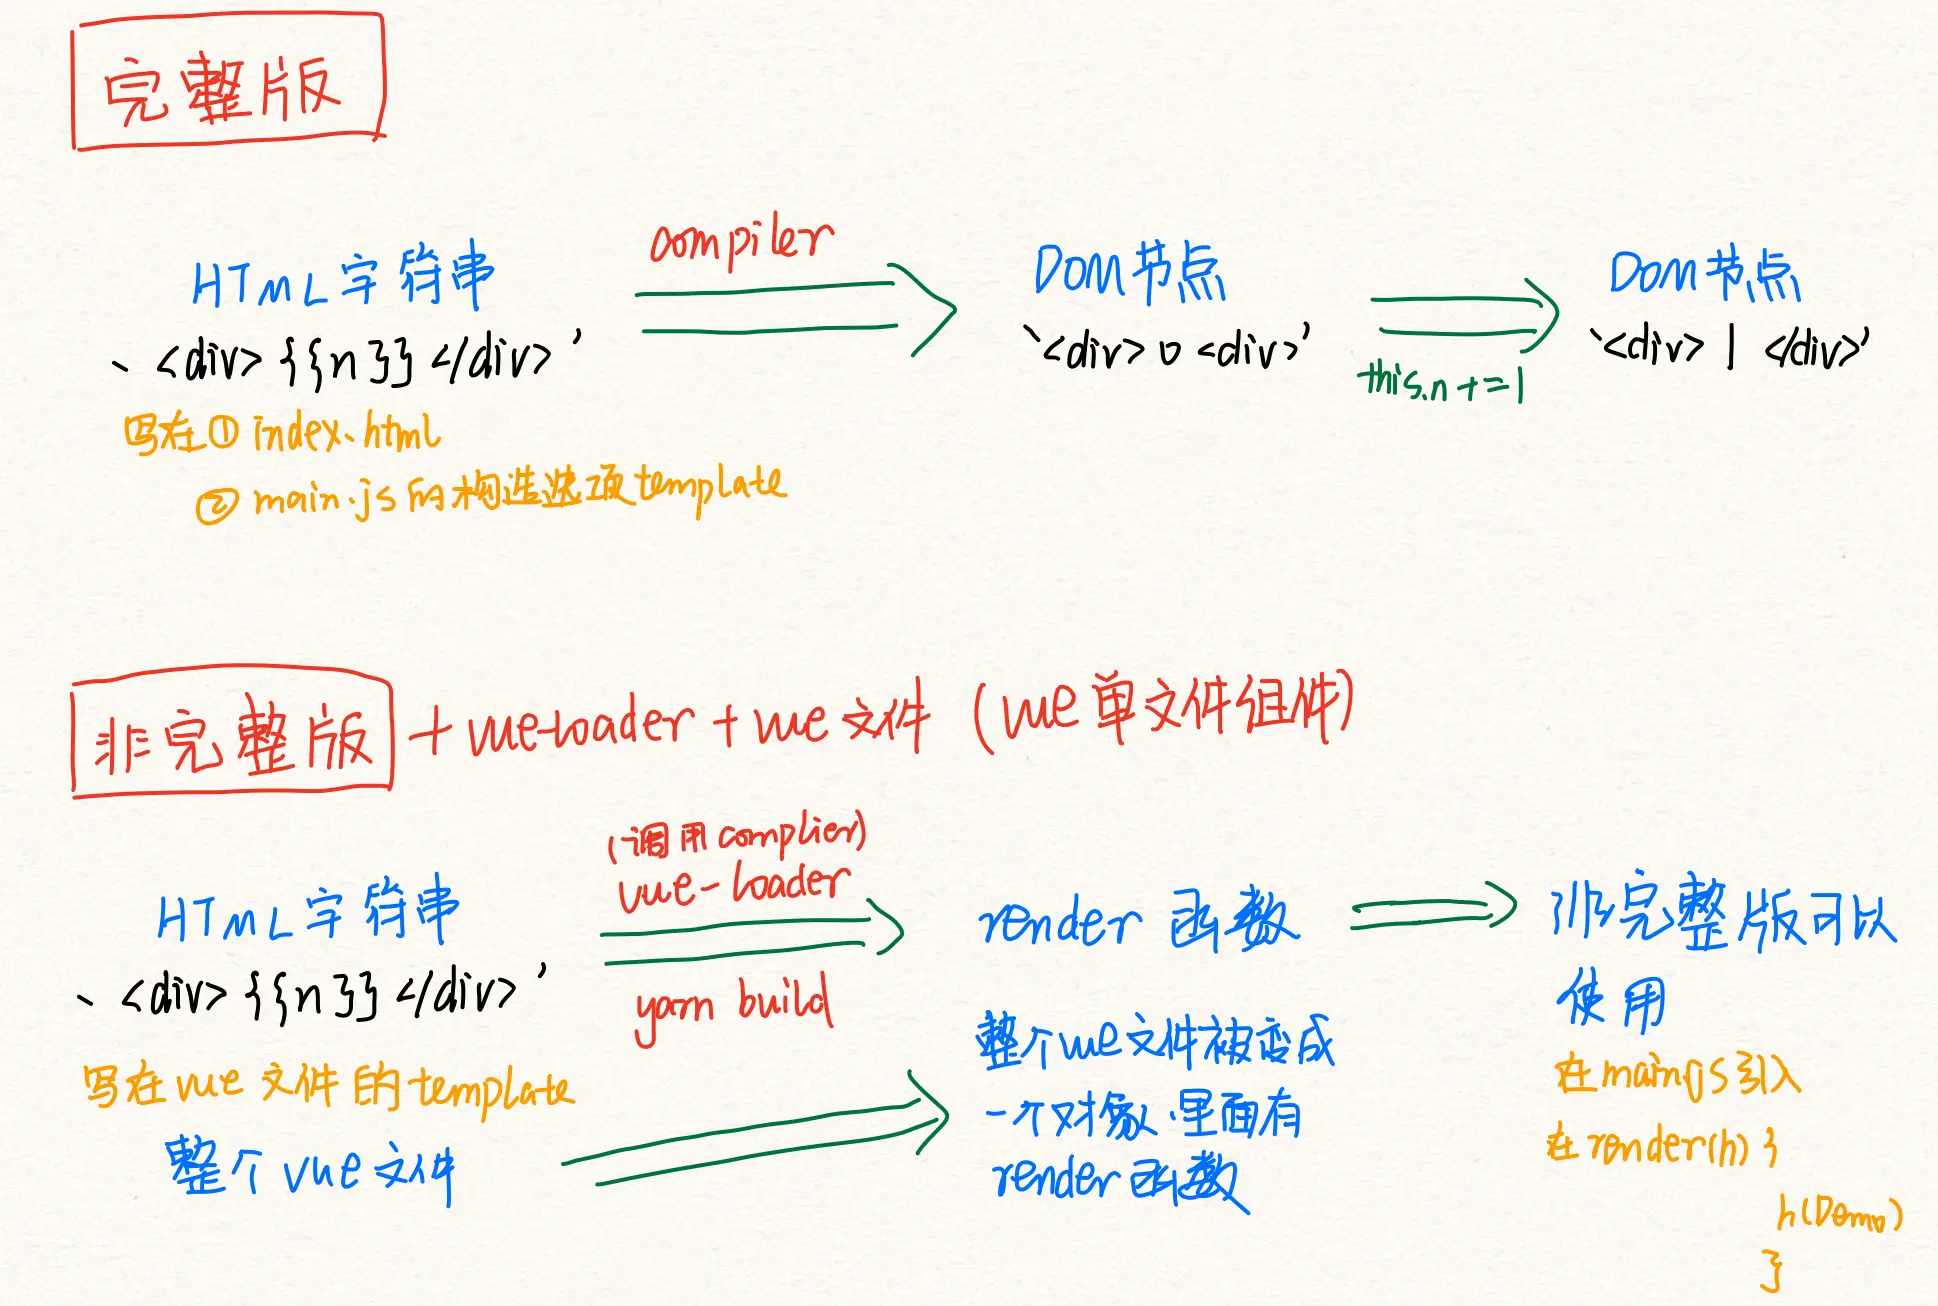 完整版
compiler
HTML字符串
DOM节点
DOM节点
`<div>{{n}}</div>'
`<div>0<div>'
`<div>1</div>'
this.n+=1
写在① index.html
② main.js的构造选项template
非完整版 + vue-loader + vue文件 (vue单文件组件)
(调用complier)
vue-loader
HTML字符串
render 函数
非完整版可以
使用
`<div>{{n}}</div>'
yarn build
写在vue文件的template
整个vue文件
整个vue文件被变成
一个对象,里面有
render函数
在main.js引入
在render(h){
h(Demo)
}